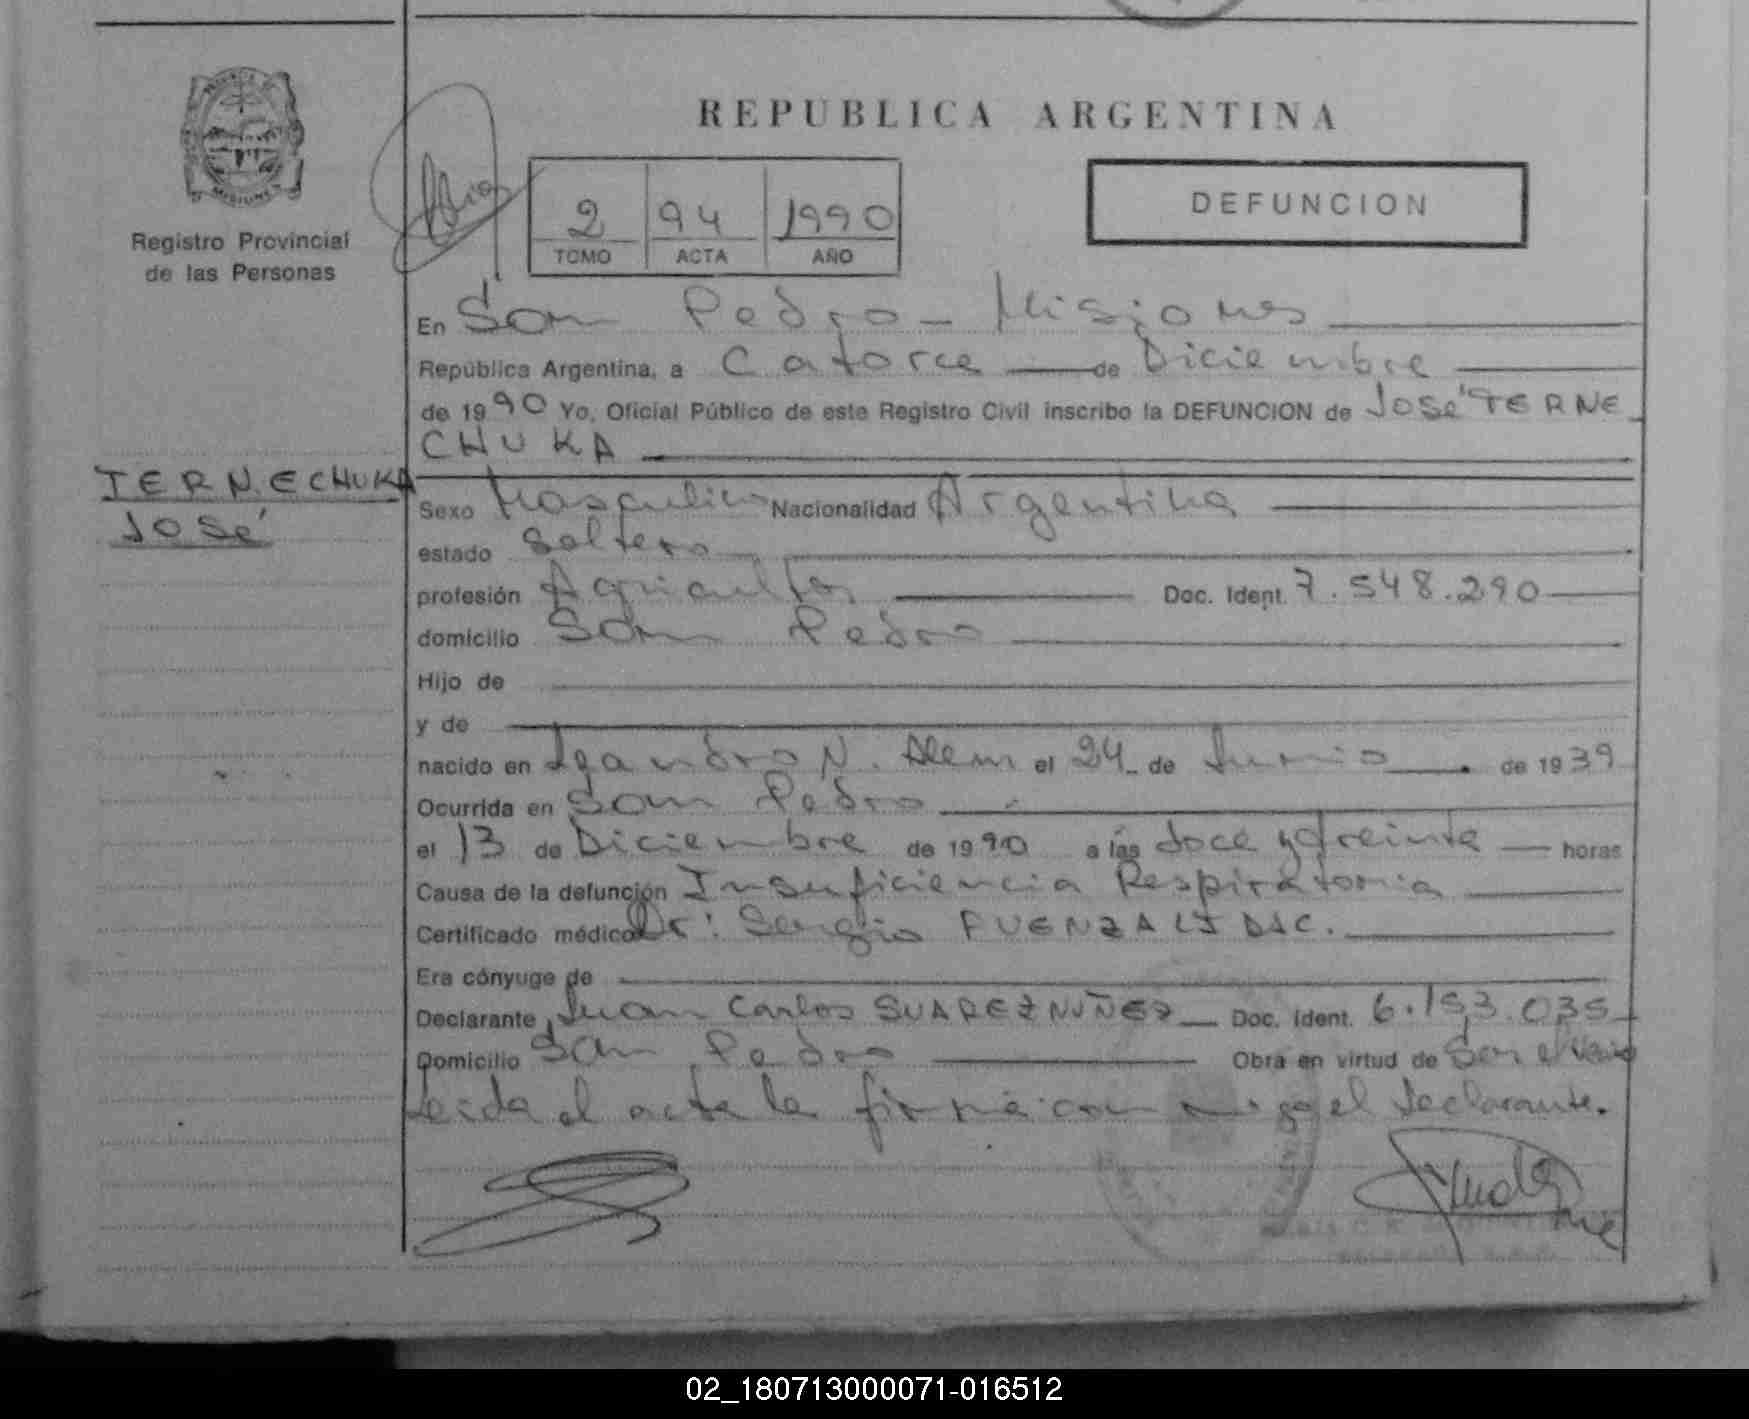 REPUBLICA ARGENTINA
2 94 1990
TOMO ACTA AÑO
DEFUNCION
Registro Provincial
de las Personas
En San Pedro - Misiones
República Argentina, a Catorce de Diciembre
de 1990 Yo, Oficial Público de este Registro Civil inscribo la DEFUNCION de José TERNE
CHUKA
TERNECHUKA
José
Sexo Masculino Nacionalidad Argentina
estado Soltero
profesión Agricultor Doc. Ident. 7.548.290
domicilio San Pedro
Hijo de
y de
nacido en Leandro N. Alem el 24 de Junio de 1939
Ocurrida en San Pedro
el 13 de Diciembre de 1990 a las doce y treinta horas
Causa de la defunción Insuficiencia Respiratoria
Certificado médico Dr: Sergio FUENZALIDA C.
Era cónyuge de
Declarante Juan Carlos SUAREZ NUÑEZ Doc. Ident. 6.153.035
Domicilio San Pedro Obra en virtud de Ser
Leida el acta la firma con migo el declarante.
02_180713000071-016512